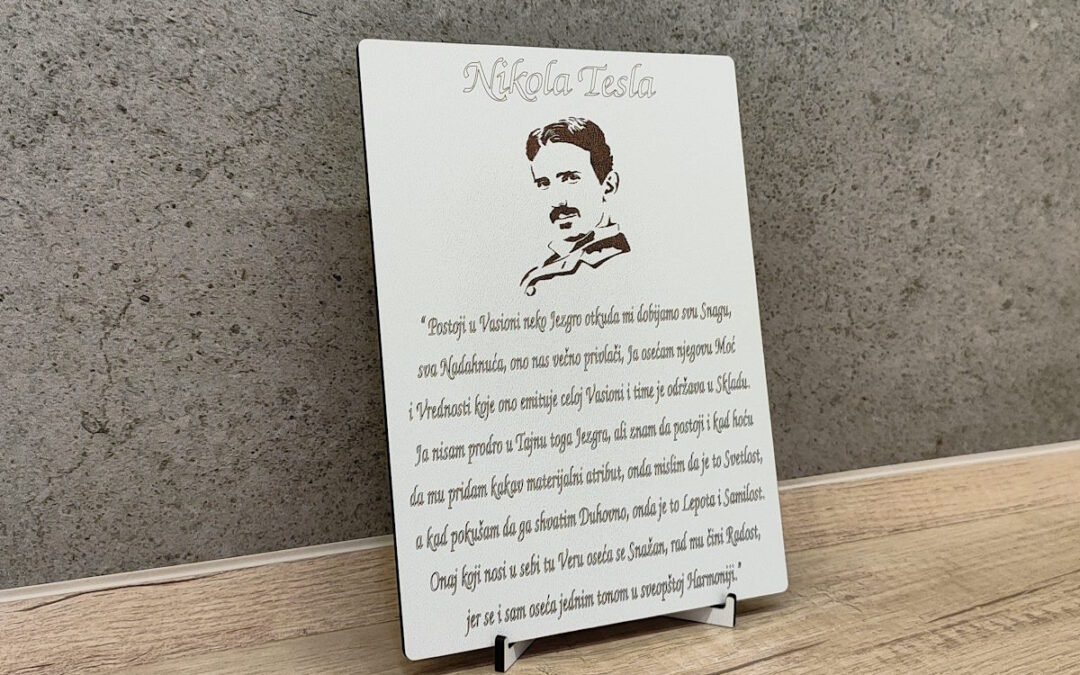 Nikola Tesla
“Postoji u Vasioni neko Jezgro otkuda mi dobijamo svu Snagu,
sva Nadahnuća, ono nas večno privlači, Ja osećam njegovu Moć
i Vrednosti koje ono emituje celoj Vasioni i time je održava u Skladu.
Ja nisam prodro u Tajnu toga Jezgra, ali znam da postoji i kad hoću
da mu pridam kakav materijalni atribut, onda mislim da je to Svetlost,
a kad pokušam da ga shvatim Duhovno, onda je to Lepota i Samilost.
Onaj koji nosi u sebi tu Veru oseća se Snažan, rad mu čini Radost,
jer se i sam oseća jednim tonom u sveopštoj Harmoniji.”